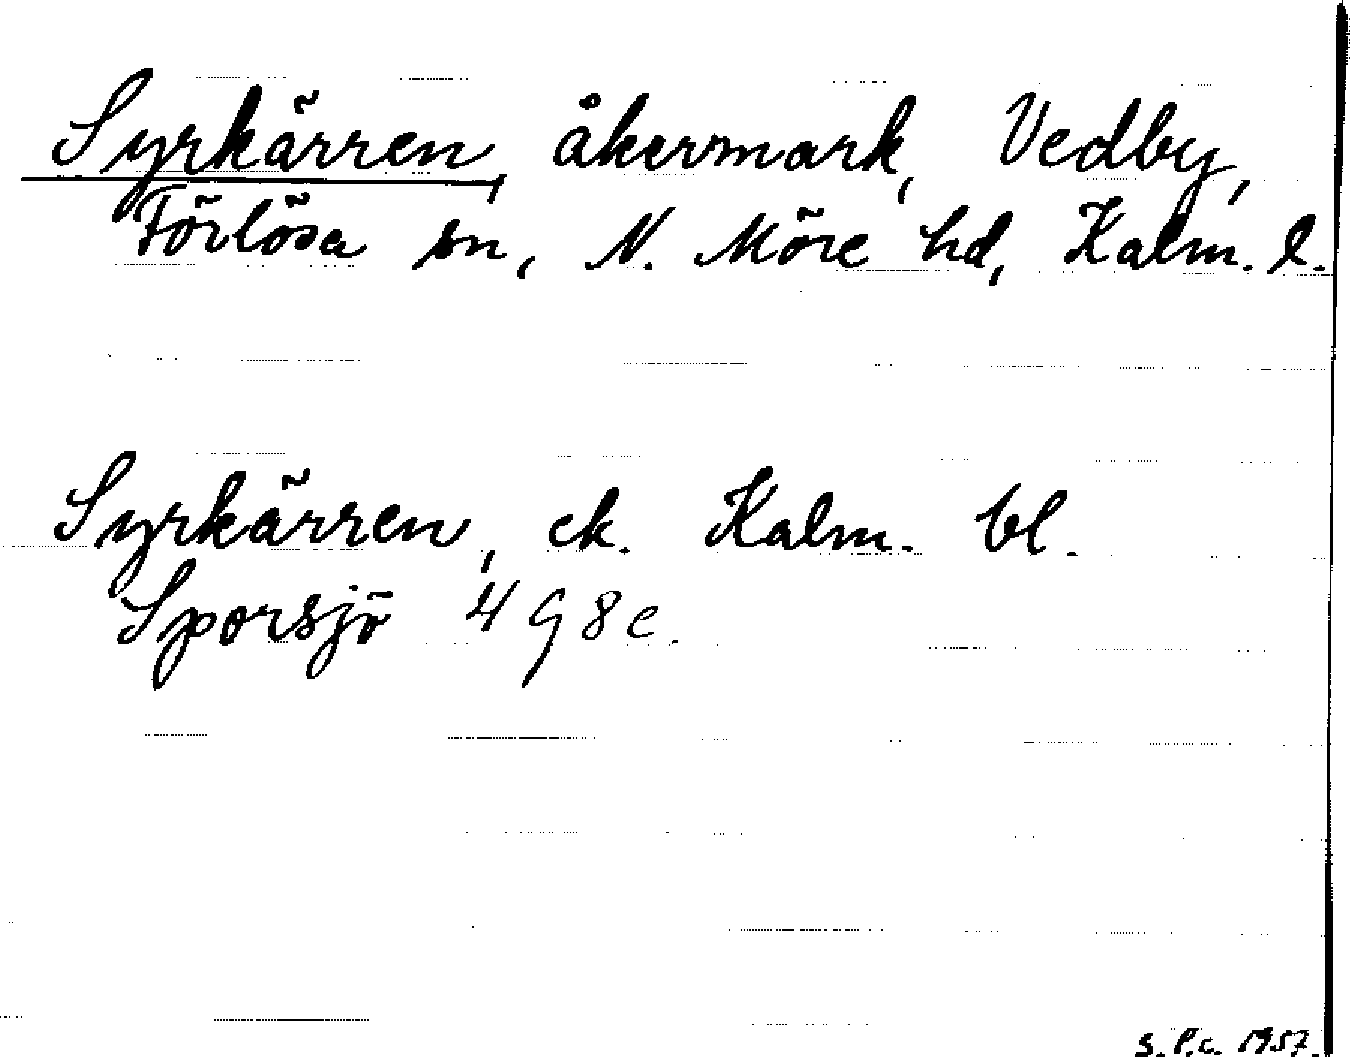 Syrkärren, åkermark, Vedby,
Förlösa sn, N. Möre hd, Kalm. l.
Syrkärren, ek. Kalm. bl.
Sporsjö 4 g 8 e.
S.P.c. 1957